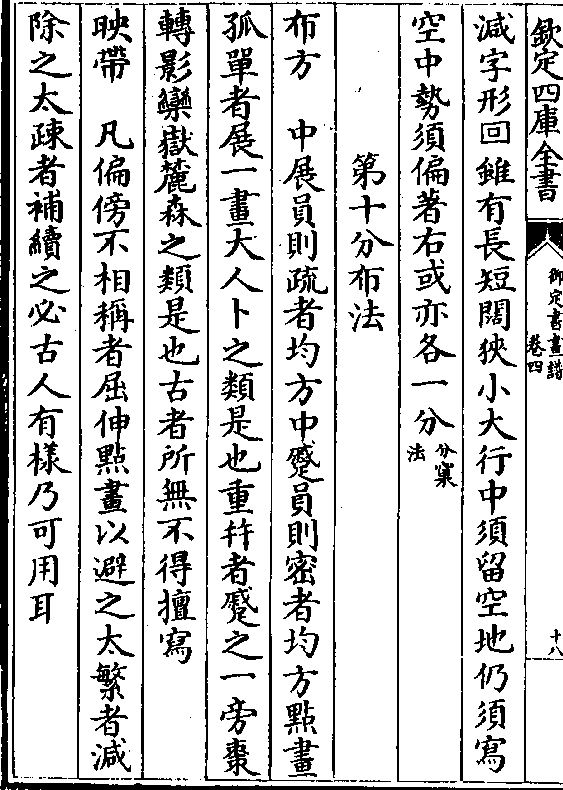 欽定四庫全書
御定書畫譜
卷四
十八
減字形回雖有長短闊狹小大行中須留空地仍須寫
空中勢須偏著右或亦各一分分窠法
第十分布法
布方　中展員則疏者均方中蹙員則密者均方點畫
孤單者展一畫大人卜之類是也重幷者蹙之一旁棗
轉影蠻嶽麓森之類是也古者所無不得擅寫
映帶　凡偏傍不相稱者屈伸點畫以避之太繁者減
除之太疎者補續之必古人有樣乃可用耳